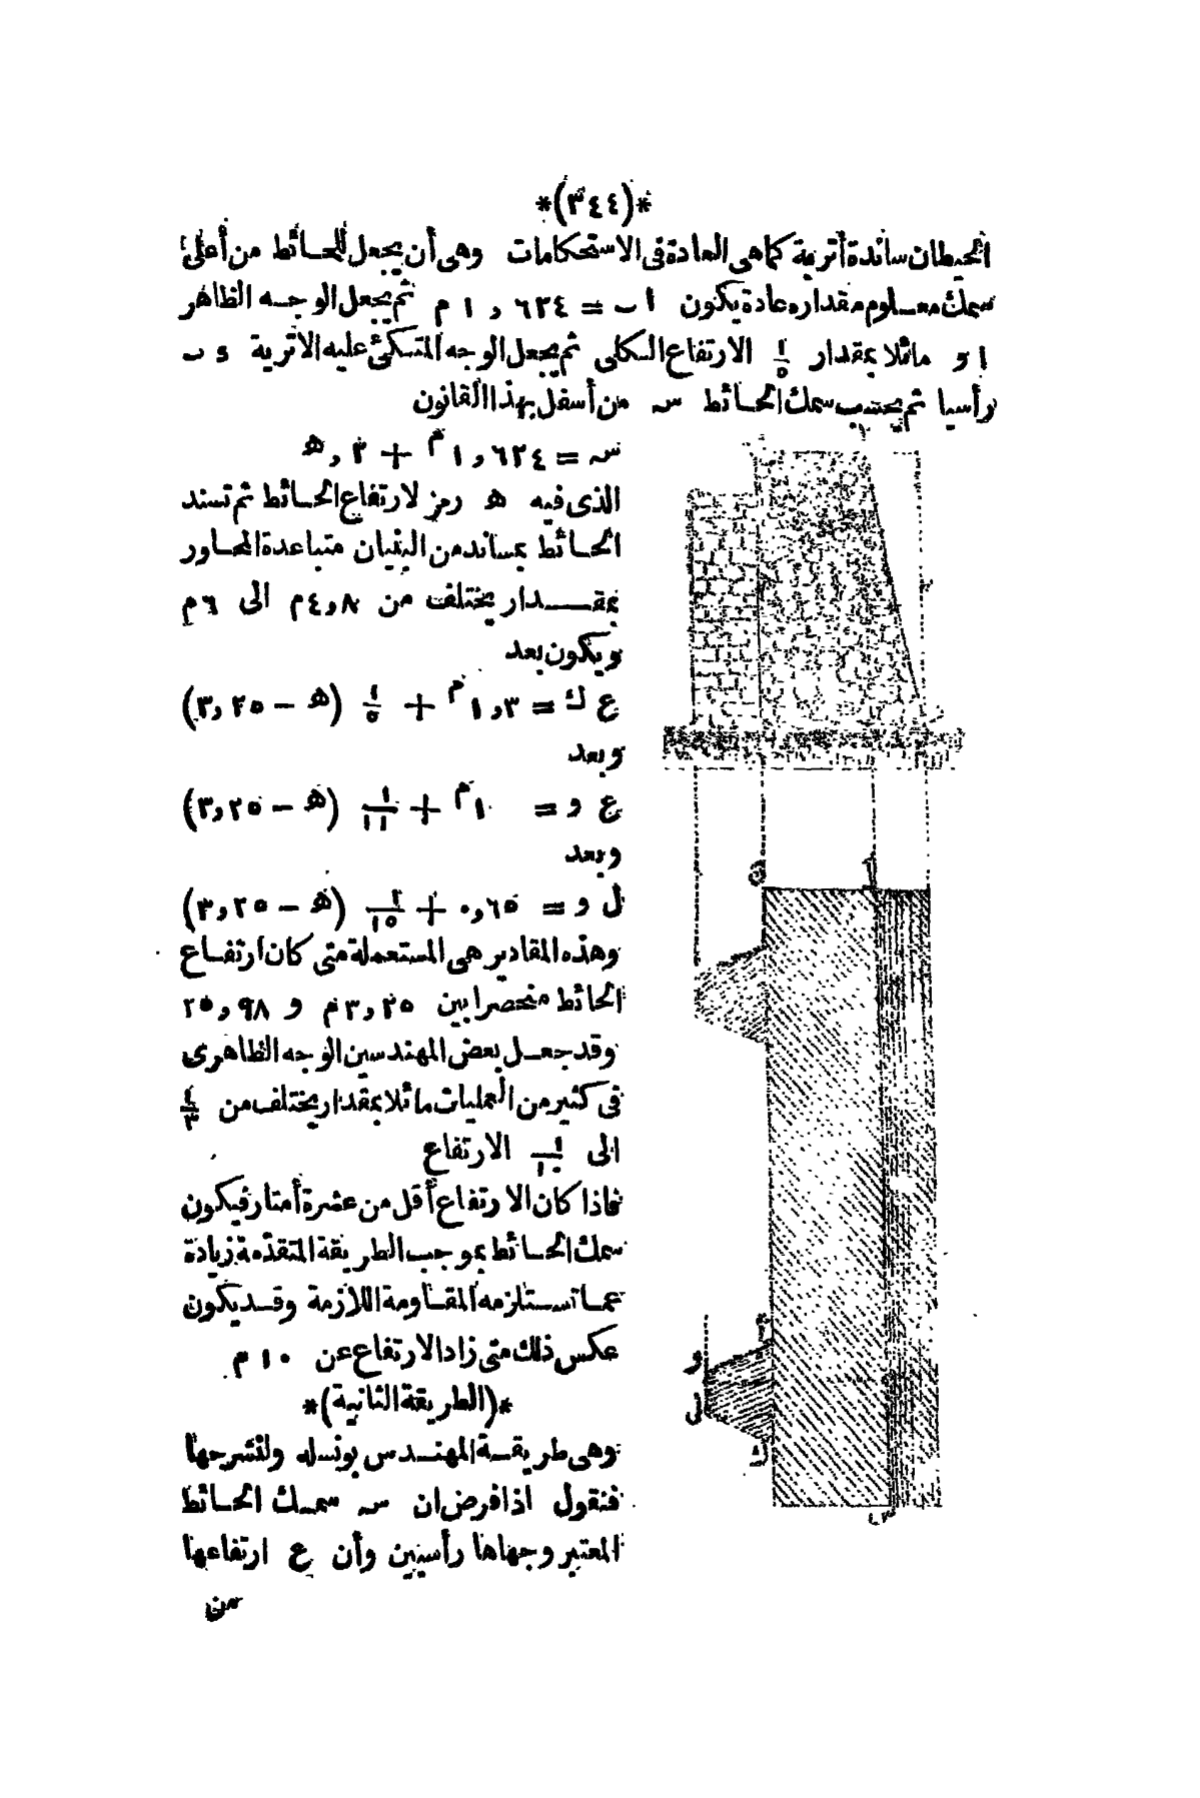 *(٣٤٤)*
الحيطان ساندة أتربة كما هى العادة فى الاستحكامات وهى أن يجعل للحائط من أعلى
سمك معلوم مقداره عادة يكون ا ب = ٦٢٤ و ١ م ثم يجعل الوجه الظاهر
ا و مائلا بمقدار ١/٥ الارتفاع الكلى ثم يجعل الوجه المتكئ عليه الاتربة و ب
رأسيا ثم يحتسب سمك الحائط س من أسفل بهذا القانون
س = ٦٢٤ و ١ م + ٢ و ه
الذى فيه ه رمز لارتفاع الحائط ثم تسند
الحائط بمساند من البنيان متباعدة المحاور
بمقدار يختلف من ٨ و ٤ م الى ٦ م
ويكون بعد
ع ك = ٣ و ١ م + ١/٥ (ه - ٢٥ و ٣)
وبعد
ع و = ١ م + ١/١١ (ه - ٢٥ و ٣)
وبعد
ل و = ٦٥ و ٠ + ٢/١٥ (ه - ٢٥ و ٣)
وهذه المقادير هى المستعملة متى كان ارتفاع
الحائط منحصرا بين ٢٥ و ٣ م و ٩٨ و ٢٥
وقد جعل بعض المهندسين الوجه الظاهرى
فى كثير من العمليات مائلا بمقدار يختلف من
الى ١/١٠ الارتفاع
فاذا كان الارتفاع أقل من عشرة أمتار فيكون
سمك الحائط بموجب الطريقة المتقدمة زيادة
عما تستلزمه المقاومة اللازمة وقد يكون
عكس ذلك متى زاد الارتفاع عن ١٠ م
*(الطريقة الثانية)*
وهى طريقة المهندس بونسله ولنشرحها
فنقول اذا فرض ان س سمك الحائط
المعتبر وجهاها رأسيين وأن ع ارتفاعها
من
و
ل
ك